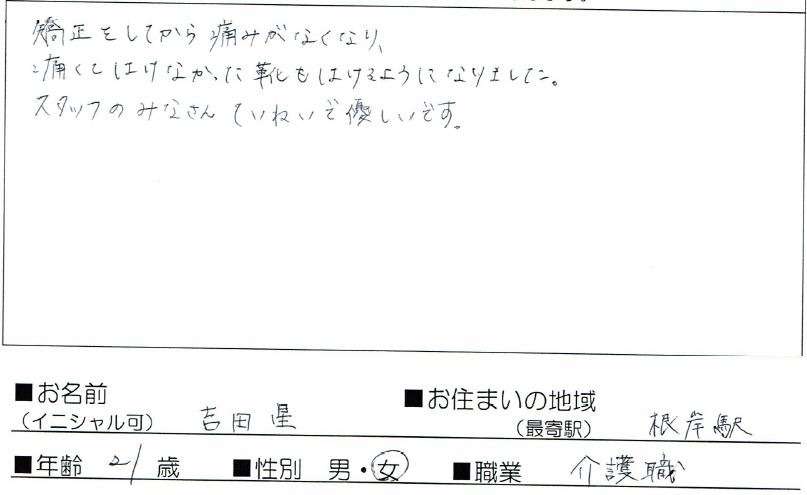 矯正をしてから痛みがなくなり、
痛くてはけなかった靴もはけるようになりました。
スタッフのみなさんていねいで優しいです。
■お名前
(イニシャル可) 吉田 星
■お住まいの地域
(最寄駅) 根岸駅
■年齢 21歳 ■性別 男・女 ■職業 介護職